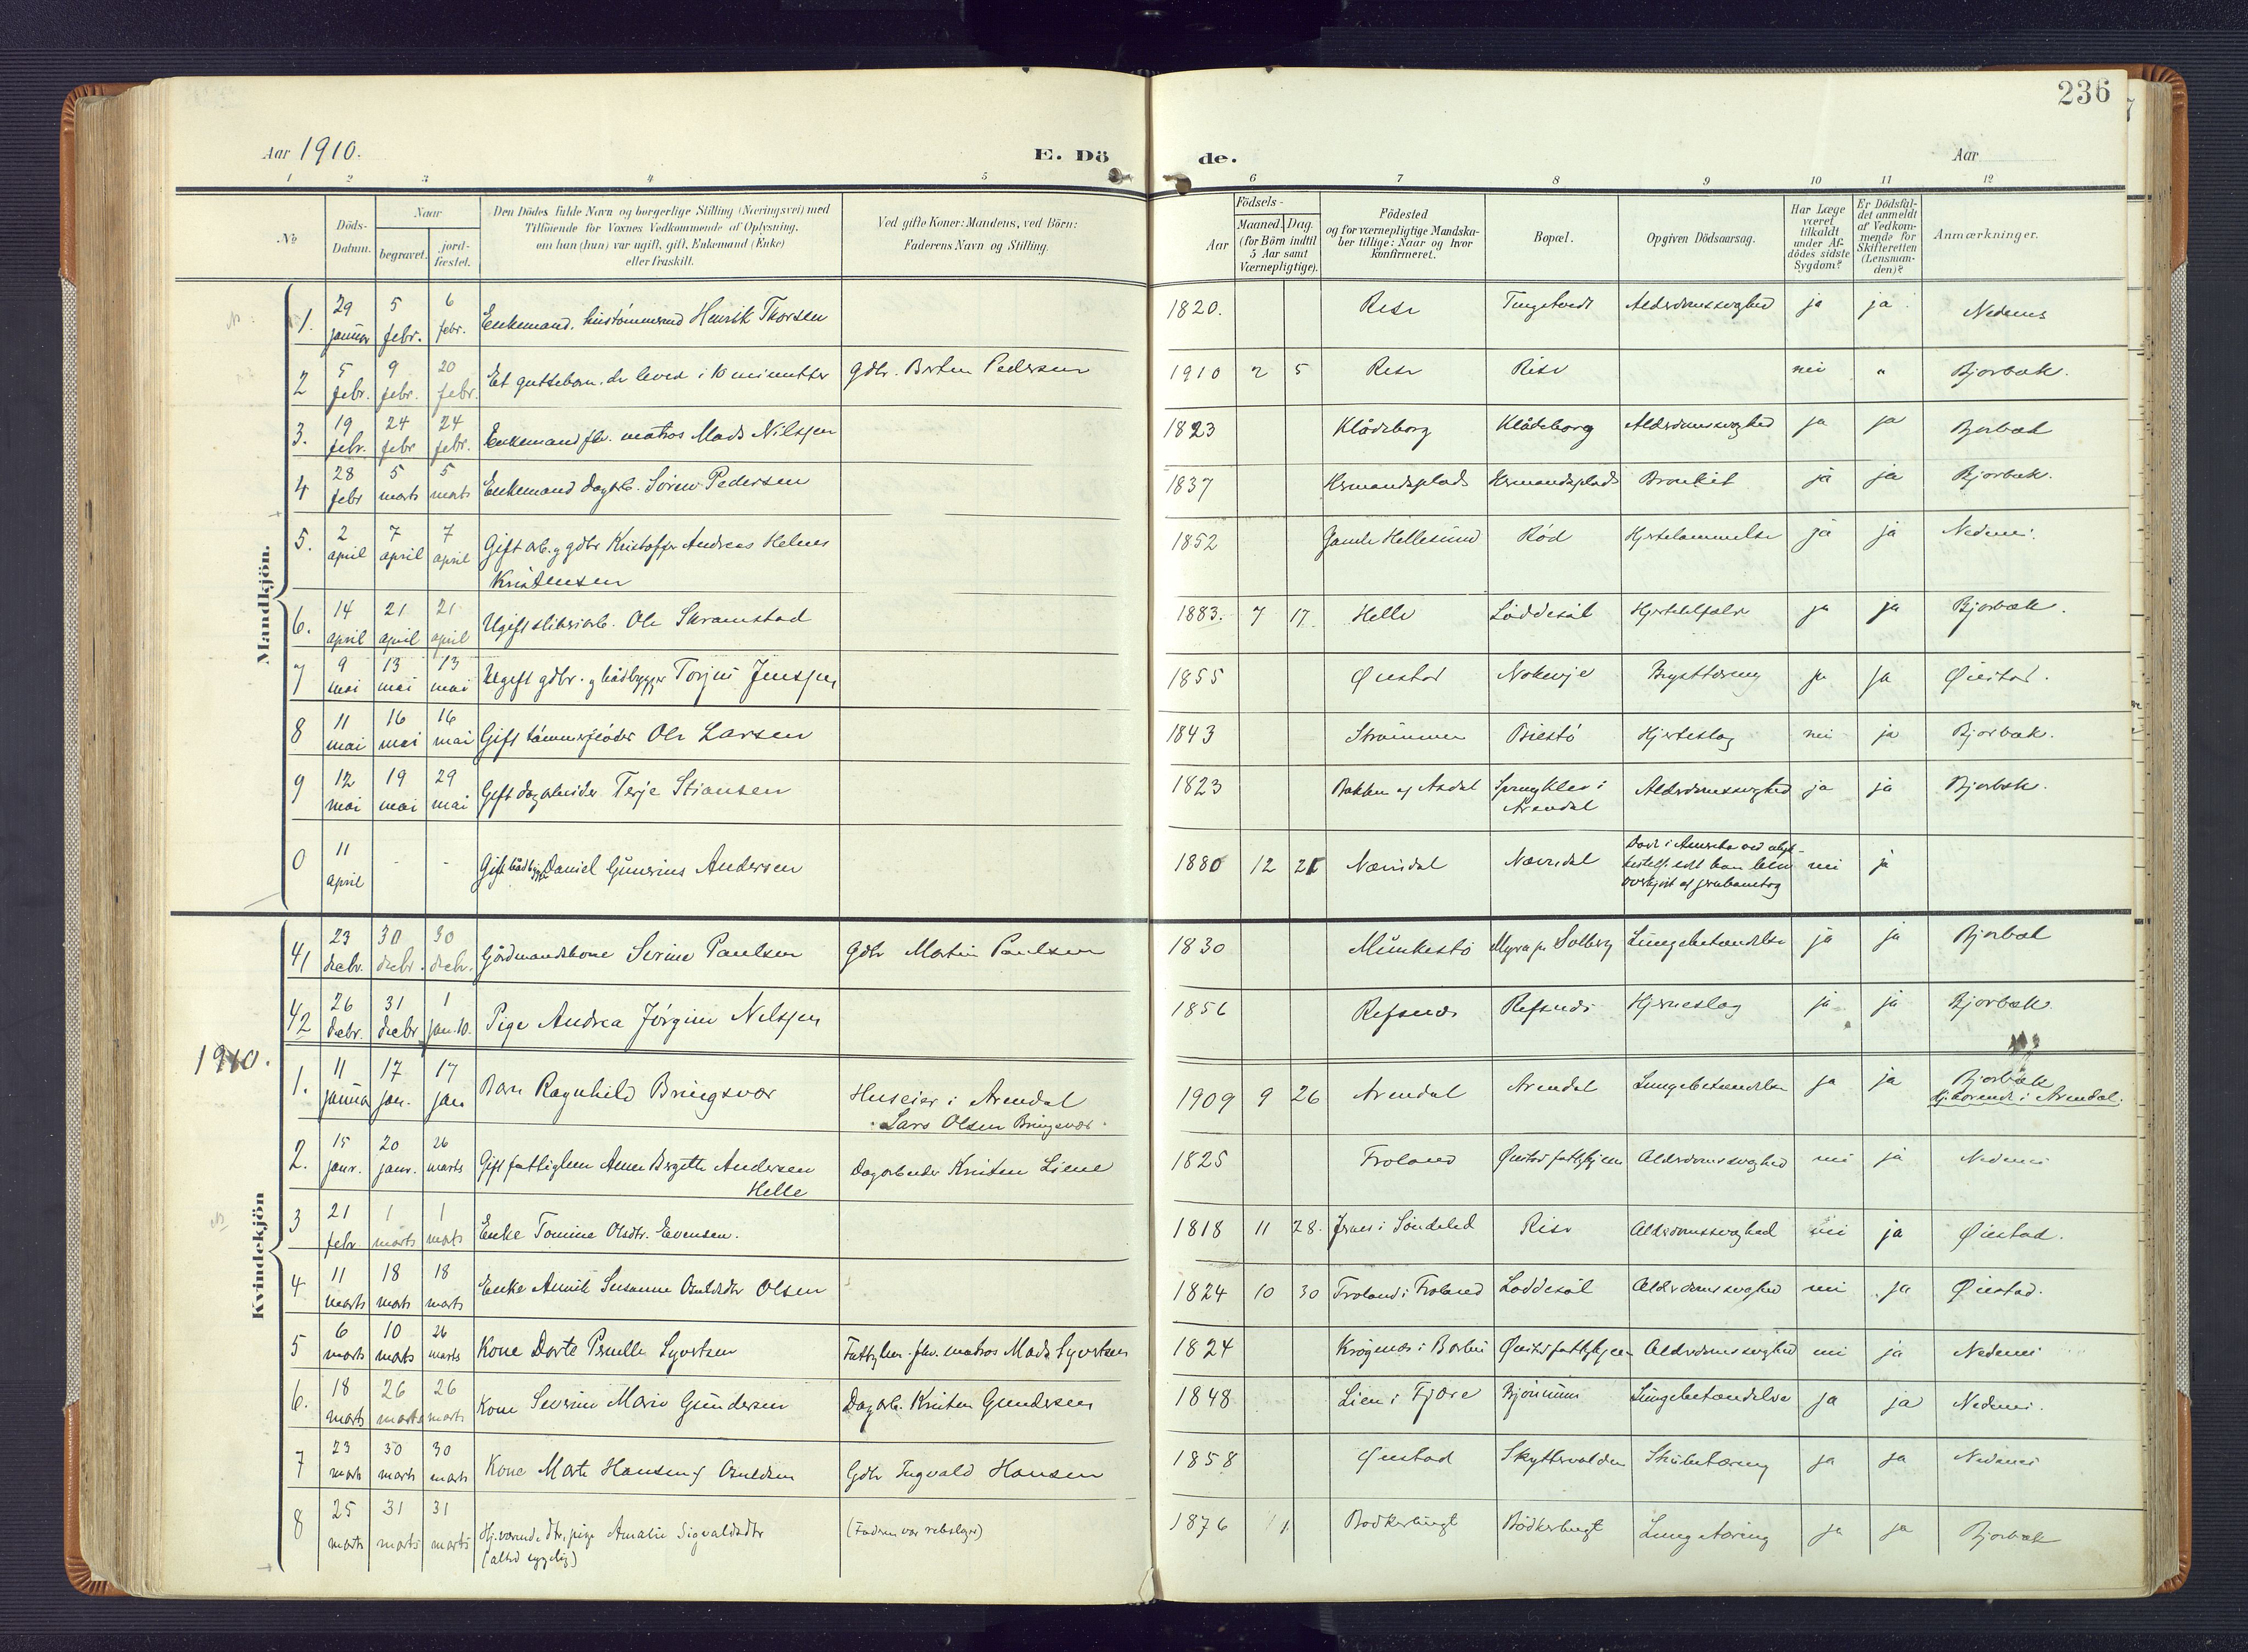 236
Aar 1910.
E. Dö
de.
Aar
1 2 3 4 5 6 7 8 9 10 11 12
№
Döds-Datum.
Naar
begravet.
jord-fæstet.
Den Dödes fulde Navn og borgerlige Stilling (Næringsvei) med
Tilföiende for Voxnes Vedkommende af Oplysning,
om han (hun) var ugift, gift, Enkemand (Enke)
eller fraskilt.
Ved gifte Koner: Mandens, ved Börn:
Faderens Navn og Stilling.
Födsels-
Aar
Maaned. Dag.
(for Börn indtil
5 Aar samt
Værnepligtige).
Födested
og for værnepligtige Mandska-
ber tillige: Naar og hvor
konfirmeret.
Bopæl.
Opgiven Dödsaarsag.
Har Læge
været
tilkaldt
under Af-
dödes sidste
Sygdom?
Er Dödsfal-
det anmeldt
af Vedkom-
mende for
Skifteretten
(Lensman-
den)?
Anmærkninger.
Mandkjön.
1. 29 januar 5 febr. 6 febr. Enkemand, hustömmermd Henrik Thorsen 1820. Rise Tingstveit Alderdomssvaghed ja ja Nedenes
2 5 febr. 9 febr. 20 febr. Et guttebarn, der leved i 10 minutter gdbr. Berten Pedersen 1910 2 5 Rise Rise nei " Bjorbæk.
3. 19 febr. 24 febr 24 febr. Enkemand fhv. matros Mads Nilssen 1823 Klådeborg Klådeborg Alderdomssvaghed ja ja Bjorbæk
4 28 febr 5 marts 5 marts Enkemand dagarb. Sören Pedersen 1837 Kremandsplads Kremandsplads Bronkit ja ja Bjorbæk.
5. 2 april 7 april 7 april Gift arb. og gdbr Kristoffer Andreas Helnes
Kristensen 1852 Gamle Hellesund Röd Hjertelammelse ja ja Nedenes.
6. 14 april 21 april 21 april Ugift sliberiarb. Ole Skramstad 1883. 7 17. Helle Löddesöl Hjertefeil ja ja Bjorbæk.
7 9 mai 13 mai 13 mai Ugift gdbr. og bådbygger Torjus Jenssen 1855 Øiestad Nokevje Brysttæring ja ja Øiestad.
8 11 mai 16 mai 16 mai Gift tömmerflöder Ole Larsen 1843 Strömmen Biestö Hjerteslag nei ja Bjorbæk.
9 12 mai 19 mai 29 mai Gift dagarbeider Terje Stiansen 1823 Bakken af Asdal i
Arendal Alderdomssvaghed ja ja Bjorbæk.
0 11 april - - Gift bådbygger Daniel Gunerius Andersen 1880 12 21 Nævisdal Nævisdal Död i Amerika ved
han blev
overkjört af jernbanetog nei ja
Kvindekjön
41 23 decbr. 30 decbr. 30 decbr. Gårdmandskone Serine Paulsen Gdbr Martin Paulsen 1830 Munkestö Myra pr Solberg Lungebetændelse ja ja Bjorbæk
42 26 decbr. 31 decbr 1 jan. 10. Pige Andrea Jörgine Nelssen 1856 Refsnes Refsnes Hjerneslag ja ja Bjorbæk.
1910.
1. 11 januar 17 jan. 17 jan Barn Ragnhild Bringsvær Huseier i Arendal
Lars Olsen Bringsvær. 1909 9 26 Arendal Arendal Lungebetændelse ja ja Bjorbæk
Hj.hörende i Arendal.
2. 15 janr. 20 janr. 26 marts Gift fattiglem Anne Birgitte Andersen
Helle Dagarbeider Knuten Liene 1825 Froland Øiestad fattighjem Alderdomssvaghed nei ja Nedenes
3 21 febr. 1 marts 1 marts Enke Tomine Olsdtr. Evensen. 1818 11 28. Jernes i Söndeled Rise Alderdomssvaghed nei ja Øiestad.
4 11 marts 18 marts 18 marts Enke Annik Susanne Osuldsdtr Olsen 1824 10 30 Froland i Froland Löddesöl Alderdomssvaghed nei ja Øiestad.
5 6 marts 10 marts 26 marts Kone Dorte Pernille Syvertsen Fattiglem fhv. matros Mads Syvertsen 1824 Krögenes i Barbu Øiestad fattighjem Alderdomssvaghed nei ja Nedenes
6. 18 marts 26 marts 26 marts Kone Severine Marie Gundersen Dagarb. Knuten Gundersen 1848 Lien i Fjære Bjönnum Lungebetændelse ja ja Nedenes.
7 23 marts 30 marts 30 marts Kone Marte Hansen f. Osuldsen Gdbr Ingvald Hansen 1858 Øiestad Skyttervolden Strubetæring ja ja Nedenes
8 25 marts 31 marts 31 marts Hj.værende dtr, pige Amalie Sigvaldsdtr
(altid sygelig) (Faderen var rebslager) 1876 11 Bödkerbugt Bödkerbugt Lungetæring ja ja Bjorbæk